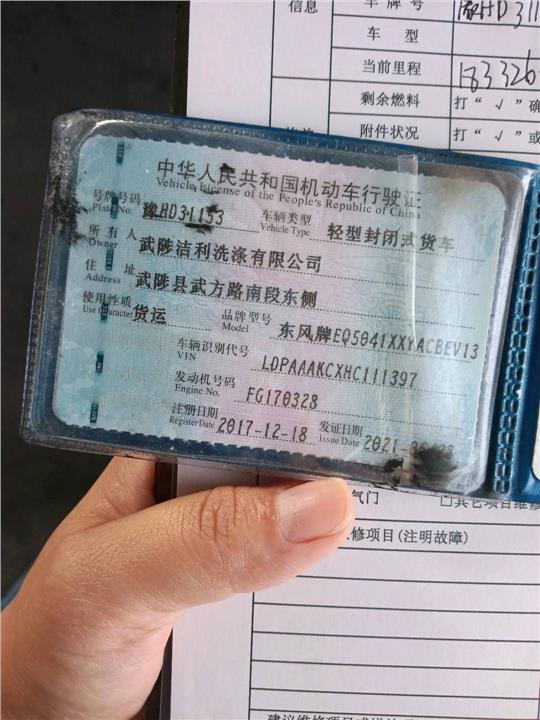 信息
车牌号
豫HD311
车型
当前里程
183326
剩余燃料
打“√”确
附件状况
打“√”或
中华人民共和国机动车行驶证
Vehicle License of the People's Republic of China
号牌号码 豫HD31153 车辆类型 轻型封闭式货车
Plate No. Vehicle Type
所有人 武陟洁利洗涤有限公司
Owner
住址 武陟县武方路南段东侧
Address
使用性质 货运 品牌型号 东风牌EQ5041XXYACBEV13
Use Character Model
车辆识别代号 LDPAAAKCXHC111397
VIN
发动机号码 FG170328
Engine No.
注册日期 2017-12-18 发证日期 2021-
Register Date Issue Date
气门 □其它项目维修
修项目(注明故障)